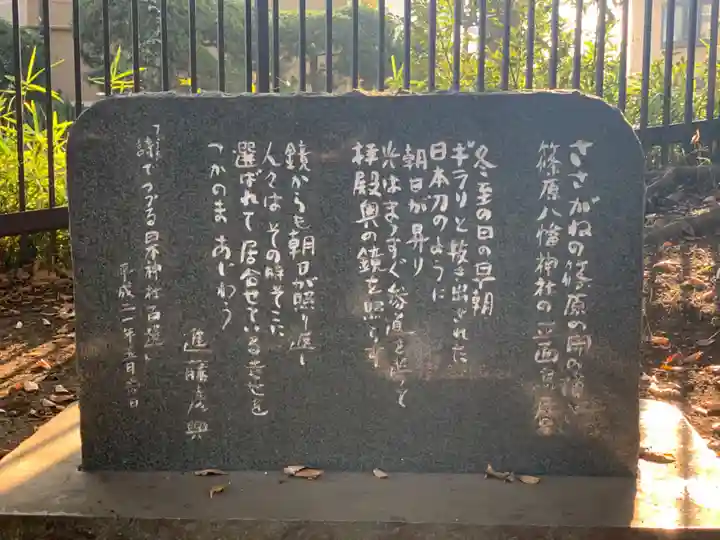 ささがねの篠原の岡の
篠原八幡神社の正面鳥居
冬至の日の早朝
ギラリと抜き出された
日本刀のように
朝日が昇り
光はまっすぐ参道を
拝殿奥の鏡を照らす
鏡からも朝日が照り返し
人々はその時そこに
選ばれて居合せている幸せを
つかのま あじわう
進藤彦興
「詩でつづる日本神社百選」
平成二一年五月